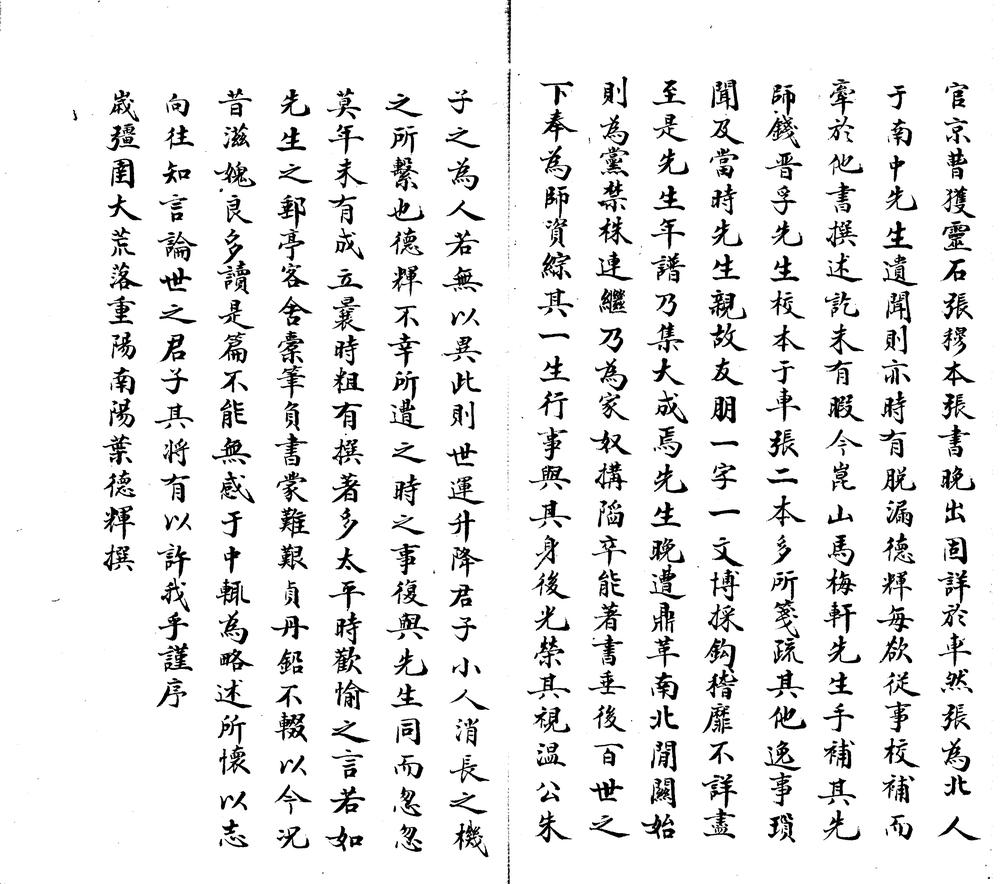 官京昔獲靈石張穆本張書晚出固詳於車然張為北人
于南中先生遺聞則亦時有脱漏德輝每欲從事校補而
牽於他書撰述訖未有暇今崑山馬梅軒先生手補其先
師錢晋孚先生校本于車張二本多所箋疏其他逸事瑣
聞及當時先生親故友朋一字一文博採鈎稽靡不詳盡
至是先生年譜乃集大成焉先生晚遭鼎革南北閒關始
則為黨禁株連繼乃為家奴搆䧟卒能著書垂後百世之
下奉為師資綜其一生行事與其身後光榮其視溫公朱
子之為人若無以異此則世運升降君子小人消長之機
之所繫也德輝不幸所遭之時之事復與先生同而忽忽
莫年未有成立曩時粗有撰著多太平時歡愉之言若如
先生之郵亭客舍橐筆負書蒙難艱貞丹鉛不輟以今況
昔滋媿良多讀是篇不能無感于中輒為略述所懷以志
向往知言論世之君子其將有以許我乎謹序
歲彊圉大荒落重陽南陽葉德輝撰